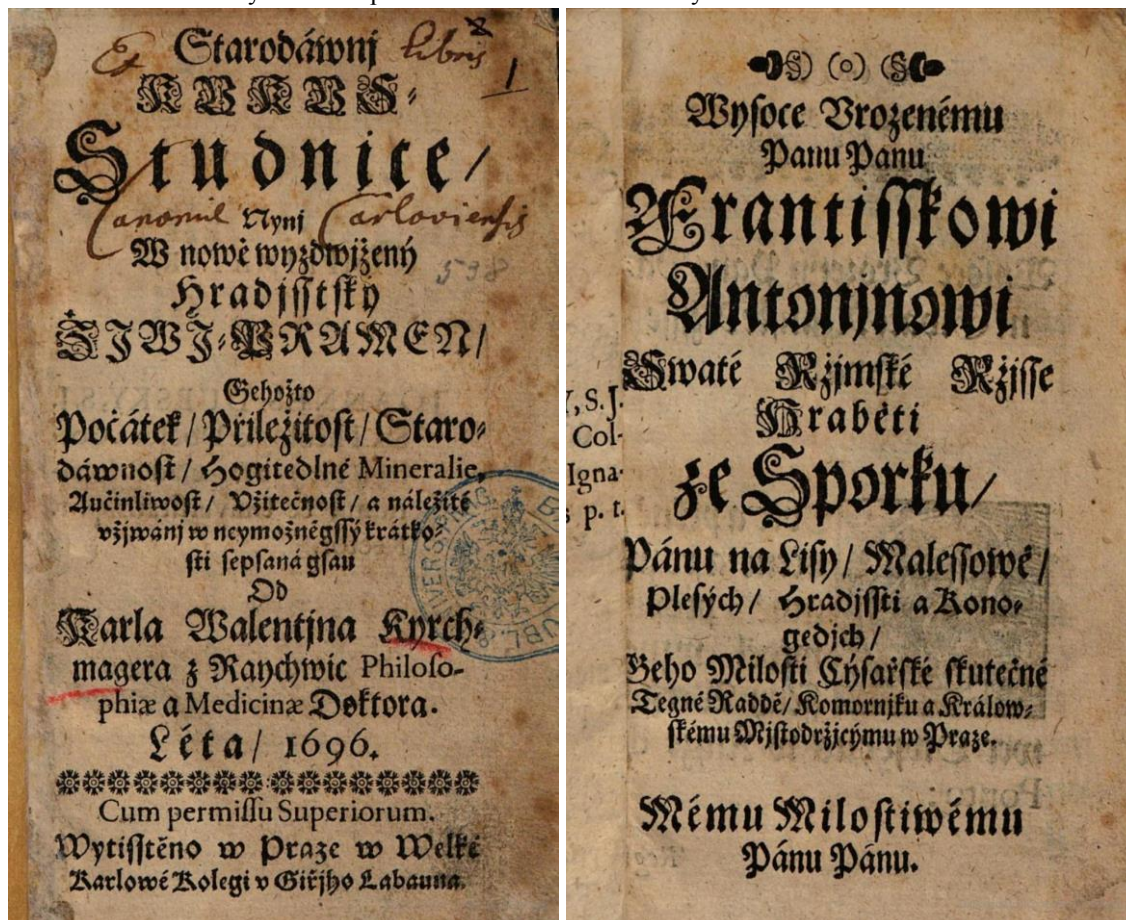 Starodáwnj
KVKVS-
Studnice/
Nynj
W nowě wyzdwjžený
Hradjsstský
ŽIWÍ-PRAMEN/
Gehožto
Počátek/ Přiležitost/ Staro-
dáwnost/ Hogitedlné Mineralie,
Aučinliwost/ Vžitečnost/ a náležité
vžjwánj w neymožněgssý krátko-
sti sepsaná gsau
Od
Karla Walentjna Kyrch-
magera z Raychwic Philoso-
phiæ a Medicinæ Doktora.
Léta/ 1696.
Cum permissu Superiorum.
Wytisstěno w Praze w Welké
Karlowé Kolegi v Giřjho Labauna.
Ex Libris
1
Canoniæ Carloviensis
598
Wysoce Vrozenému
Panu Panu
Frantisskowi
Antonjnowi
Swaté Ržjmské Ržjsse
Hraběti
ze Sporku/
Pánu na Lisy/ Malessowě/
Plesých/ Hradjssti a Kono-
gedjch/
Geho Milosti Cýsařské skutečné
Tegné Raddě/ Komornjku a Králow-
skému Mjstodržjcýmu w Praze.
Mému Milostiwému
Pánu Pánu.
, S.J.
Col-
Igna-
p. t.